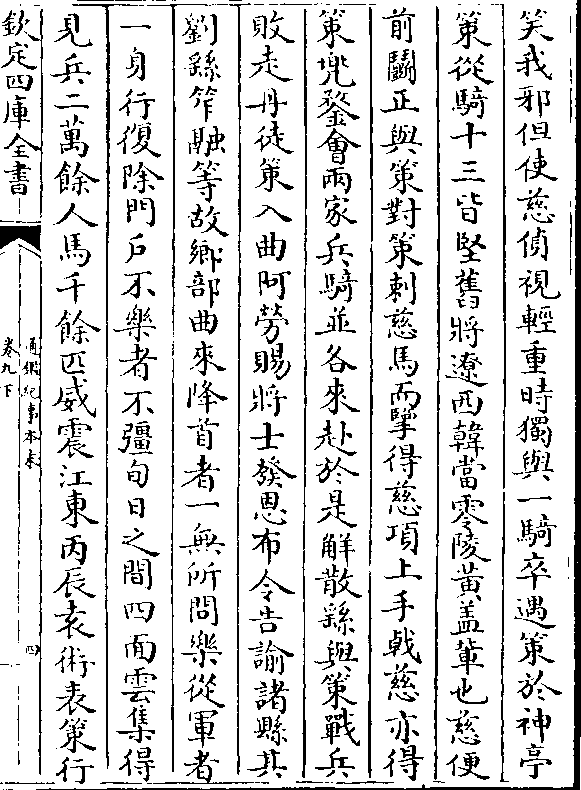 笑我邪但使慈偵視輕重時獨與一騎卒遇策於神亭
策從騎十三皆堅舊將遼西韓當零陵黃蓋輩也慈便
前鬬正與策對策刺慈馬而擥得慈項上手戟慈亦得
策兠鍪會兩家兵騎並各來赴於是解散繇與策戰兵
敗走丹徒策入曲阿勞賜將士發恩布令告諭諸縣其
劉繇笮融等故鄉部曲來降首者一無所問樂從軍者
一身行復除門戶不樂者不彊旬日之間四面雲集得
見兵二萬餘人馬千餘匹威震江東丙辰袁術表策行
欽定四庫全書
通鑑紀事本末
卷九下
四